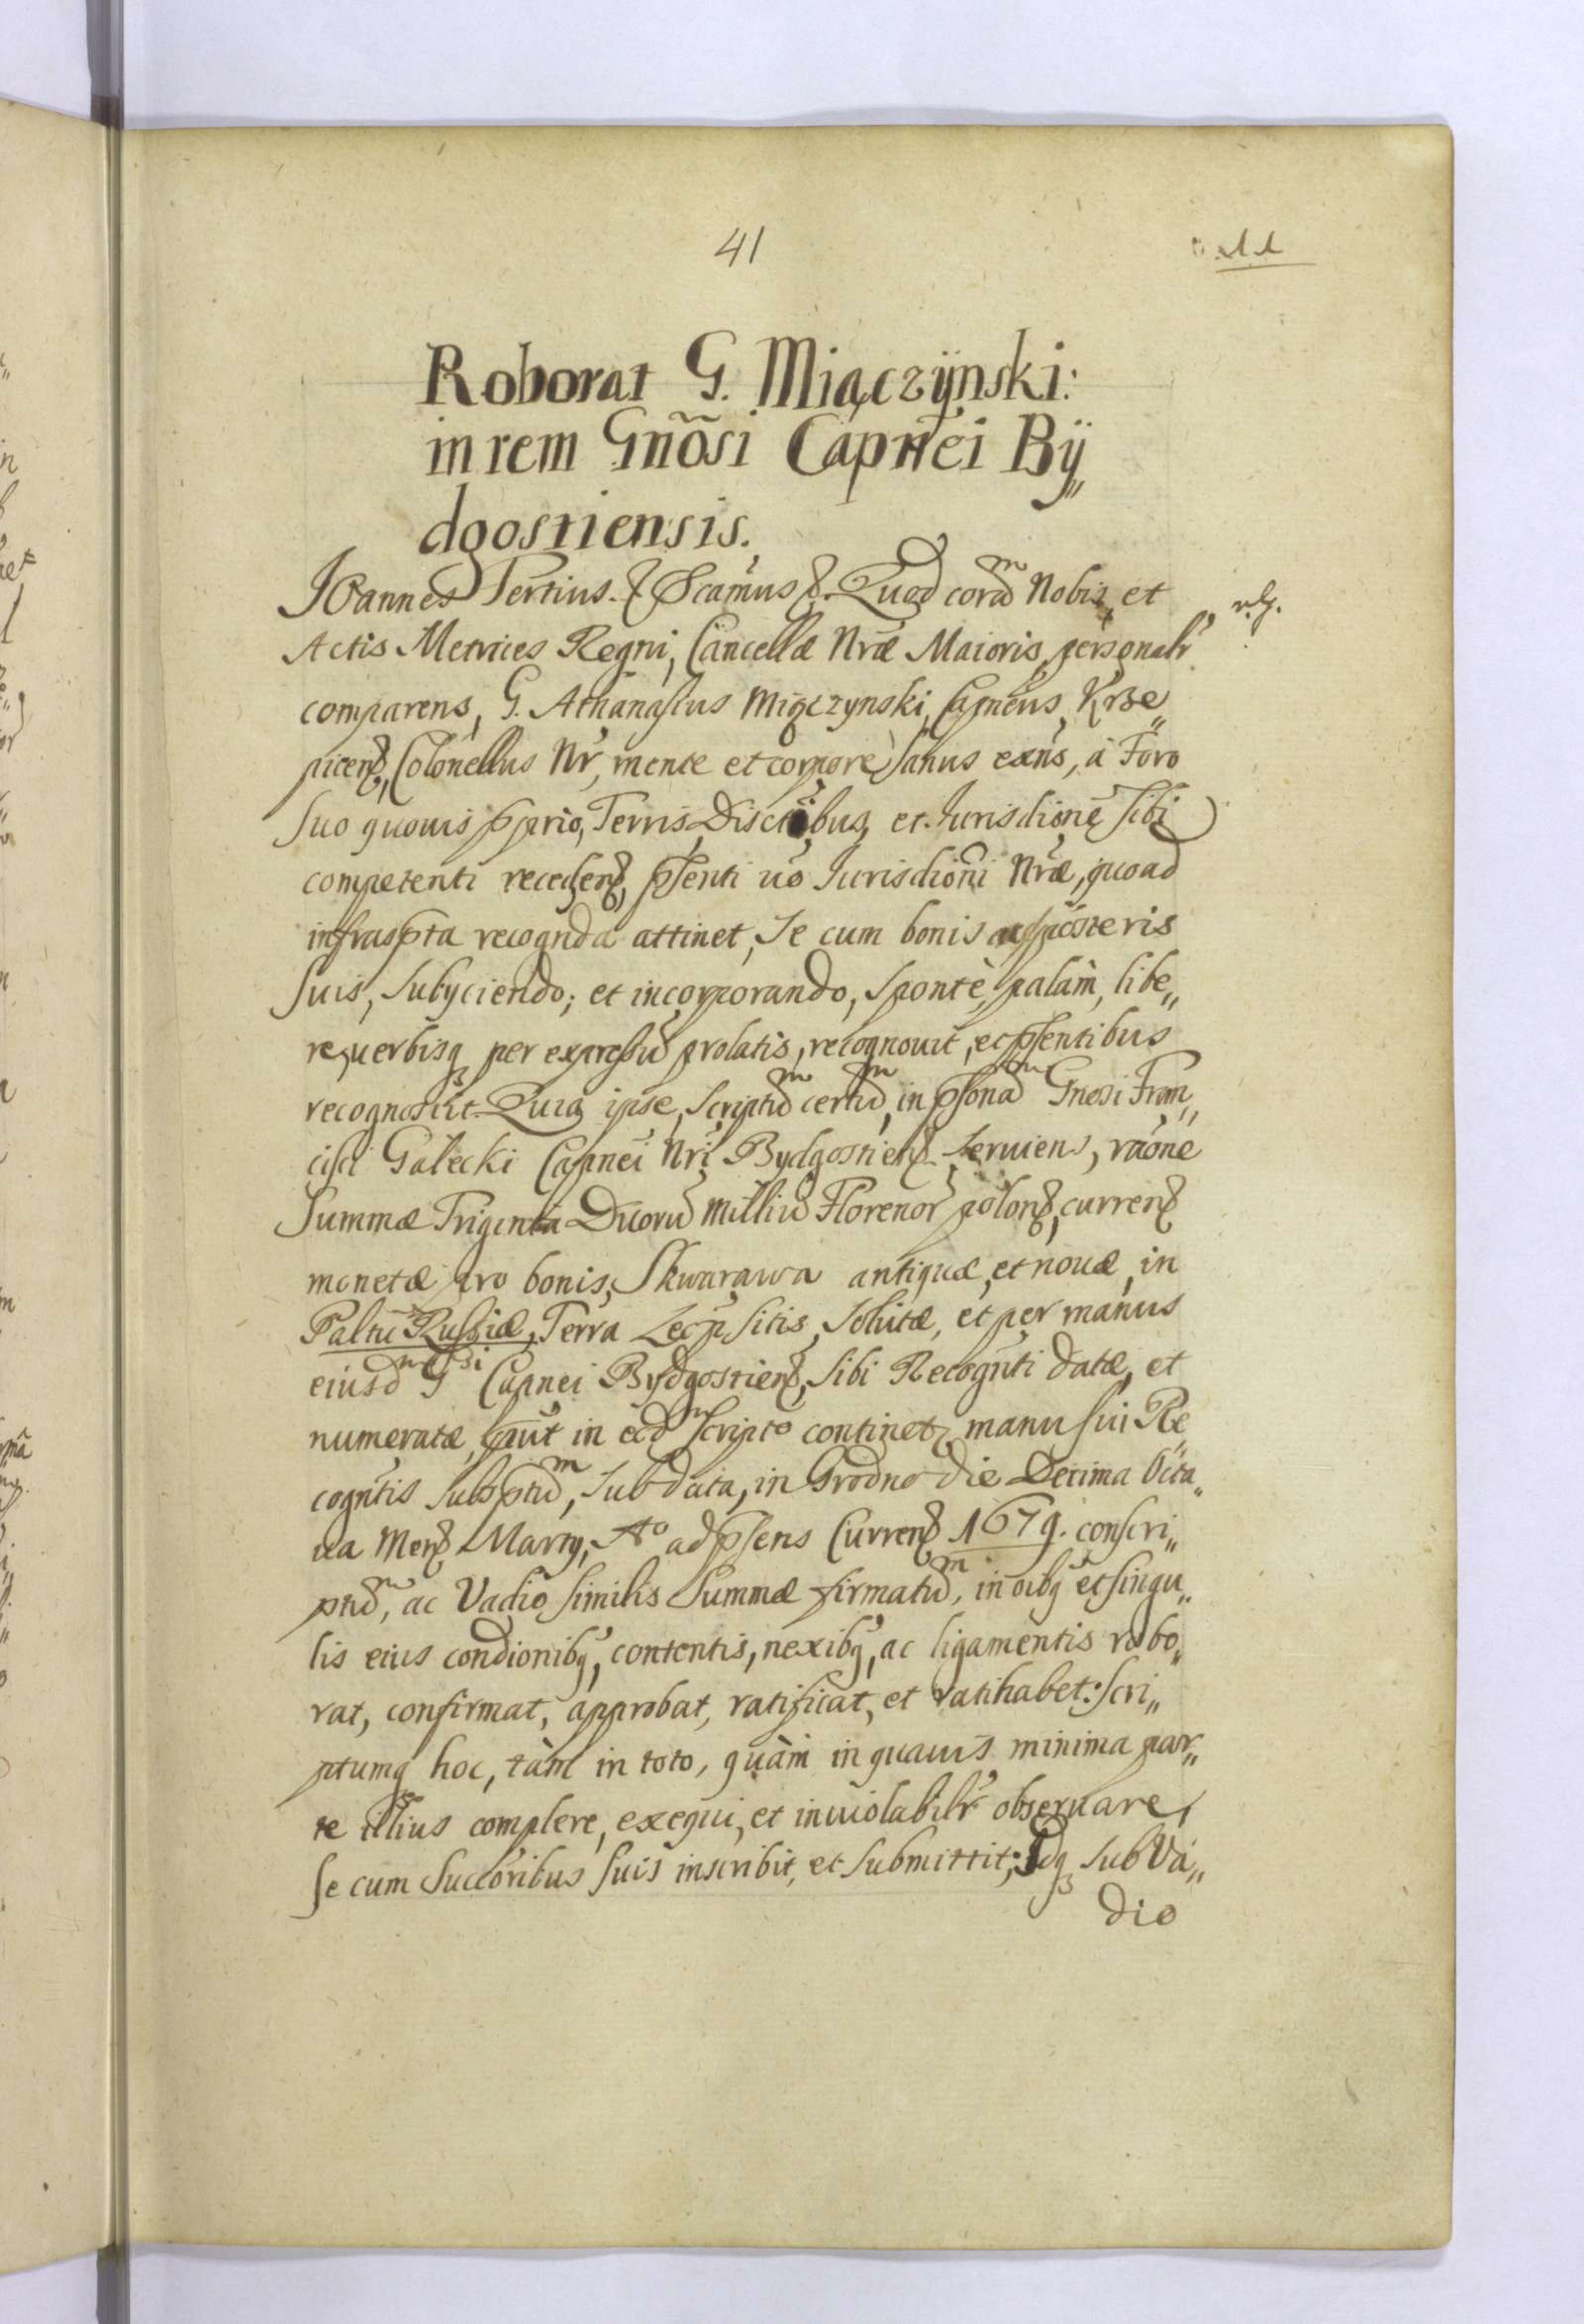 41
Roborat G. Miączÿnski:
in rem Gnõsi Capnei Bÿ„
dgostiensis.
Joannes Tertius. & Scamus &. Quod corã Nobis, et
Actis Metrices Regni, Cancellæ Nræ Maioris, personalr
comparens, G. Athanasius Miączynski, Capneus, Krze„
picens, Colonellus Nr, mente et corpore sanus exns, à Foro
suo quouis pprio, Terris, Disctibus, et Jurisdione sibi
competenti recedens, psenti uo Jurisdioni Nræ, quoad
infraspta recognda attinet, se cum bonis ac posteris
suis, subyciendo; et incorporando, sponte, palàm, libe„
re, uerbisq per expressũ prolatis, recognouit, ec psentibus
recognoscit. Quia ipse, scriptũ certũ, in psonã Gnosi Fran„
cisci Gałecki Capnei Nri Bydgostiens seruiens, raõne
summæ Triginta Duorũ Milliũ Florenor polons, currens
monetæ pro bonis, Skwarawa antiquæ, et nouæ, in
Paltu Russiæ, Terra Leop sitis, solutæ, et per manus
eiusd Gsi Capnei Bydgostiens, sibi Recognti datæ, et
numeratæ, put in eod scripto continetr, manu sui Re„
cogntis subsptũ, sub data, in Grodno die Decima Octa„
ua Mens Marty, Ao ad psens Currens 1679. conscri„
ptũ, ac Vadio similis Summæ firmatũ, in oibq et singu„
lis eius condionibq, contentis, nexibq, ac ligamentis robo„
rat, confirmat, approbat, ratificat, et ratihabet: scri„
ptumq hoc, tàm in toto, quàm in quauis minima par„
te illius complere, exequi, et inuiolabilr obseruare,
se cum succoribus suis inscribit, et submittit; Idq sub Va„
dio